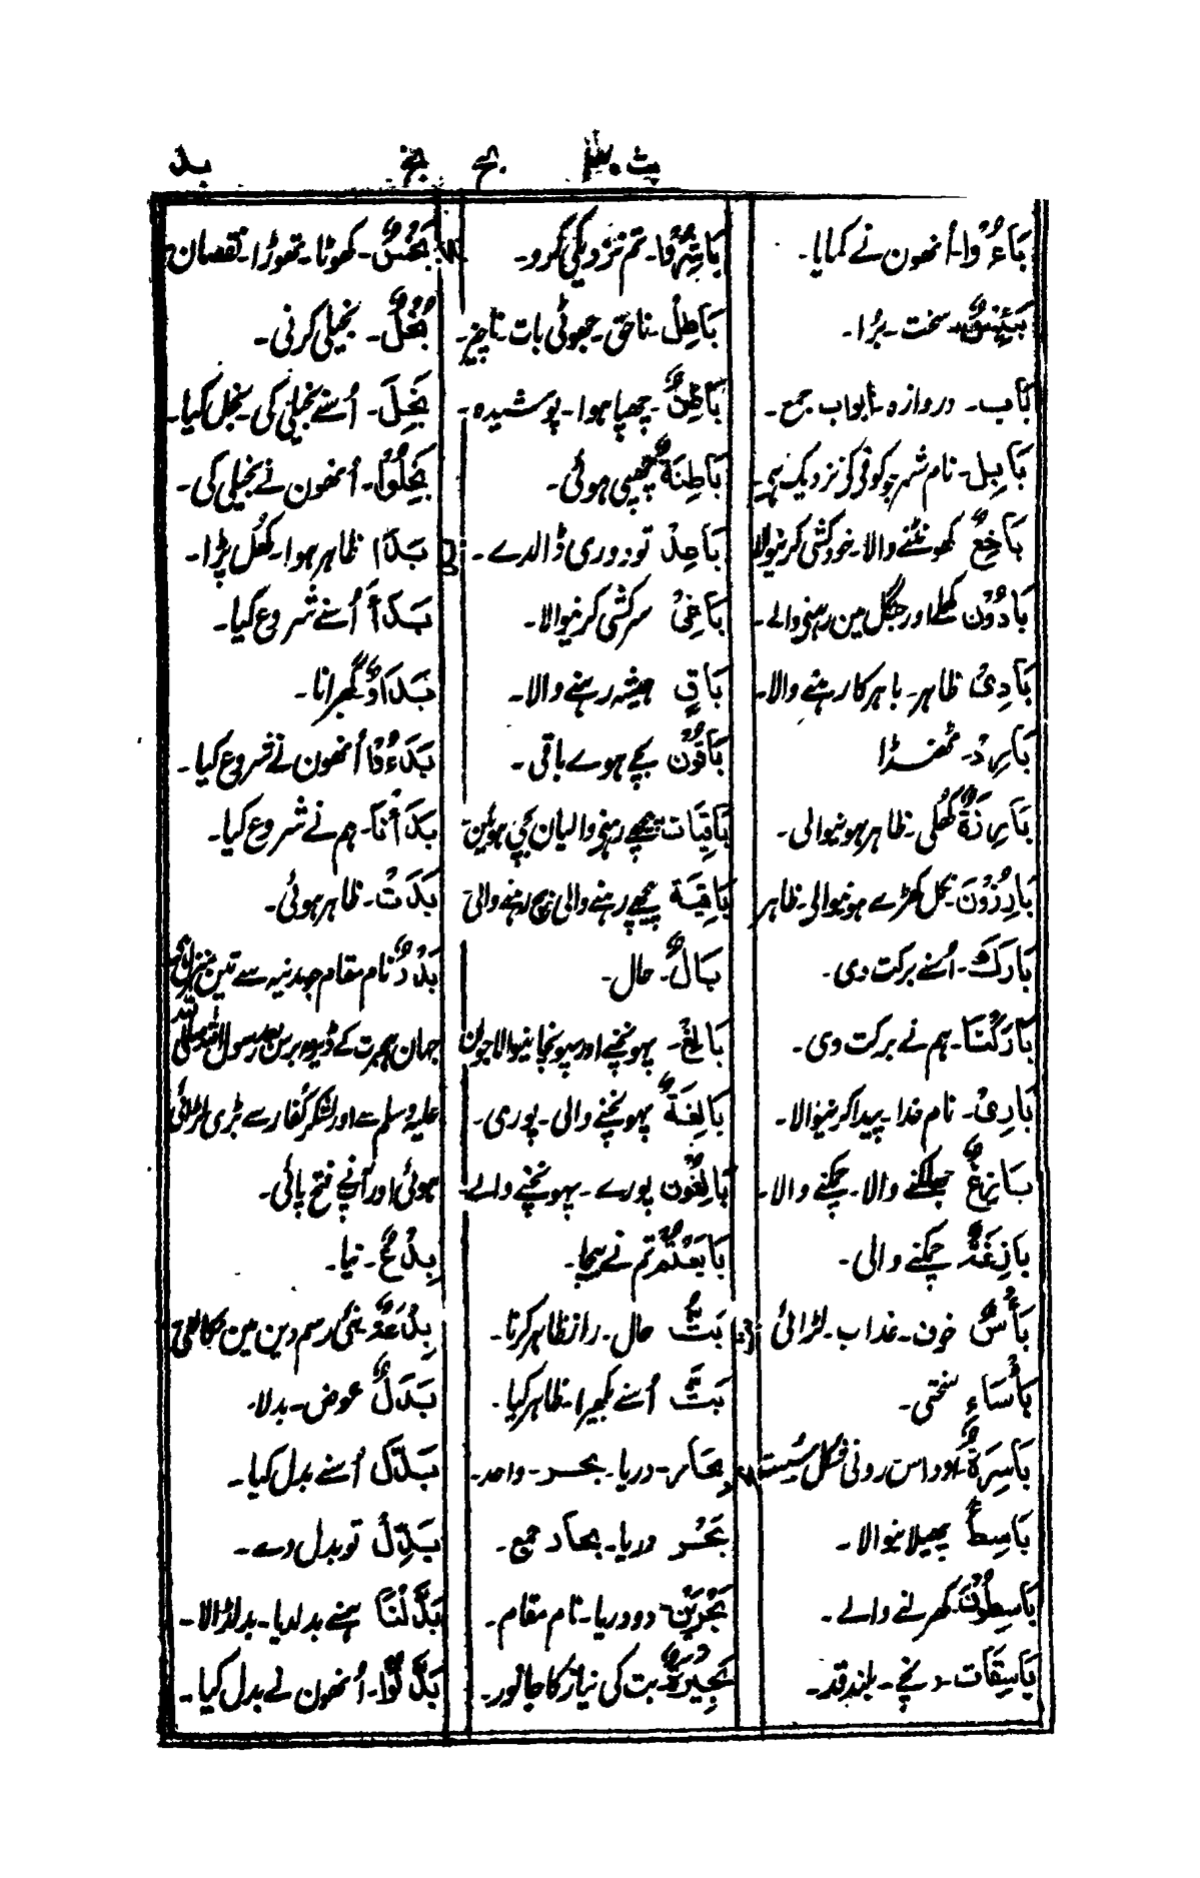 بث بح بخ بد
بَاءُوْا۔ اُنھون نے کمایا۔
بَئِیْسٌ۔ سخت۔ بُرا۔
بَاب۔ دروازہ۔ ابواب جمع۔
بَابِل۔ نام شہر جو کوفی کی نزدیک ہے۔
بَاخِعٌ گھونٹنے والا۔ خودکشی کرنیوالا
بَادُوْن کھلے اور جنگل مین رہنی والے۔
بَادِیْ ظاہر۔ باہر کا رہنے والا۔
بَارِدْ۔ ٹھنڈا
بَارِزَةٌ کھُلی۔ ظاہر ہونیوالی۔
بَارِزُوْنَ۔ نکل کھڑے ہونیوالی۔ ظاہر
بَارَكَ۔ اُسنے برکت دی۔
بَارَكْنَا۔ ہم نے برکت دی۔
بَارِیْ۔ نام خدا۔ پیدا کرنیوالا۔
بَازِغٌ جھلکنے والا۔ چمکنے والا۔
بَازِغَةٌ چمکنے والی۔
بَأْسٌ خون۔ عذاب۔ لڑائی
بَأْسَاءِ سختی۔
بَاسِرَةٌ۔ اوداس رونی شکل سُست
بَاسِطٌ پھیلانیوالا۔
بَاسِطُوْنَ۔ کھرلنے والے۔
بَاسِقَات۔ اونچے۔ بلند قد۔
بَاشِرُوْا۔ تم نزدیکی کرو۔
بَاطِلْ۔ ناحق۔ جھوٹی بات۔ ناچیز۔
بَاطِنٌ۔ چھپا ہوا۔ پوشیدہ۔
بَاطِنَةٌ چھپی ہوئی۔
بَاعِدْ تو دوری ڈالدے۔
بَاغِیْ سرکشی کرنیوالا۔
بَاقٍ ہمیشہ رہنے والا۔
بَاقُوْن بچے ہوے باقی۔
بَاقِیَات پیچھے رہنی والیان بچی ہوئین
بَاقِیَة پیچھے رہنے والی بچ رہنے والی
بَالٌ۔ حال۔
بَالِغْ۔ پہونچنے اور پہونچانیوالا جوان
بَالِغَةٌ پہونچنے والی۔ پوری۔
بَالِغُوْن پورے۔ پہونچنے والے۔
بَایَعْتُمْ تم نے بیچا۔
بَثٌّ حال۔ راز ظاہر کرنا۔
بَثَّ اُسنے بکھیرا۔ ظاہر کیا۔
بِحَار۔ دریا۔ بحر۔ واحد۔
بَحْر دریا۔ بحار جمع۔
بَحْرَیْن۔ دو دریا۔ نام مقام۔
بَحِیْرَةٌ۔ بت کی نیاز کا جانور۔
بَخْسٌ۔ کھوٹا۔ تھوڑا۔ نقصان
بُخْلٌ۔ بخیلی کرنی۔
بَخِلَ۔ اُسنے بخیلی کی۔ بخل کیا۔
بَخِلُوْا۔ اُنھون نے بخیلی کی۔
بَدَا ظاہر ہوا۔ کھُل پڑا۔
بَدَأَ اُسنے شروع کیا۔
بَدَارٌ گھبرانا۔
بَدَءُوْا اُنھون نے شروع کیا۔
بَدَأْنَا۔ ہم نے شروع کیا۔
بَدَتْ۔ ظاہر ہوئی۔
بَدْرٌ نام مقام جو مدینہ سے تین منزل ہے
جہان ہجرت کے ڈیڑہ برس بعد رسول اللہ صلی اللہ
علیہ وسلم سے اور لشکر کفار سے بڑی لڑائی
ہوئی اور آپنے فتح پائی۔
بِدْعٌ۔ نیا۔
بِدْعَةٌ۔ نئی رسم دین مین نکالنی
بَدَلٌ عوض۔ بدلا۔
بَدَّلَ اُسنے بدل کیا۔
بَدِّلْ تو بدل دے۔
بَدَّلْنَا ہمنے بدلدیا۔ بدلڈالا۔
بَدَّلُوْا۔ اُنھون نے بدل کیا۔